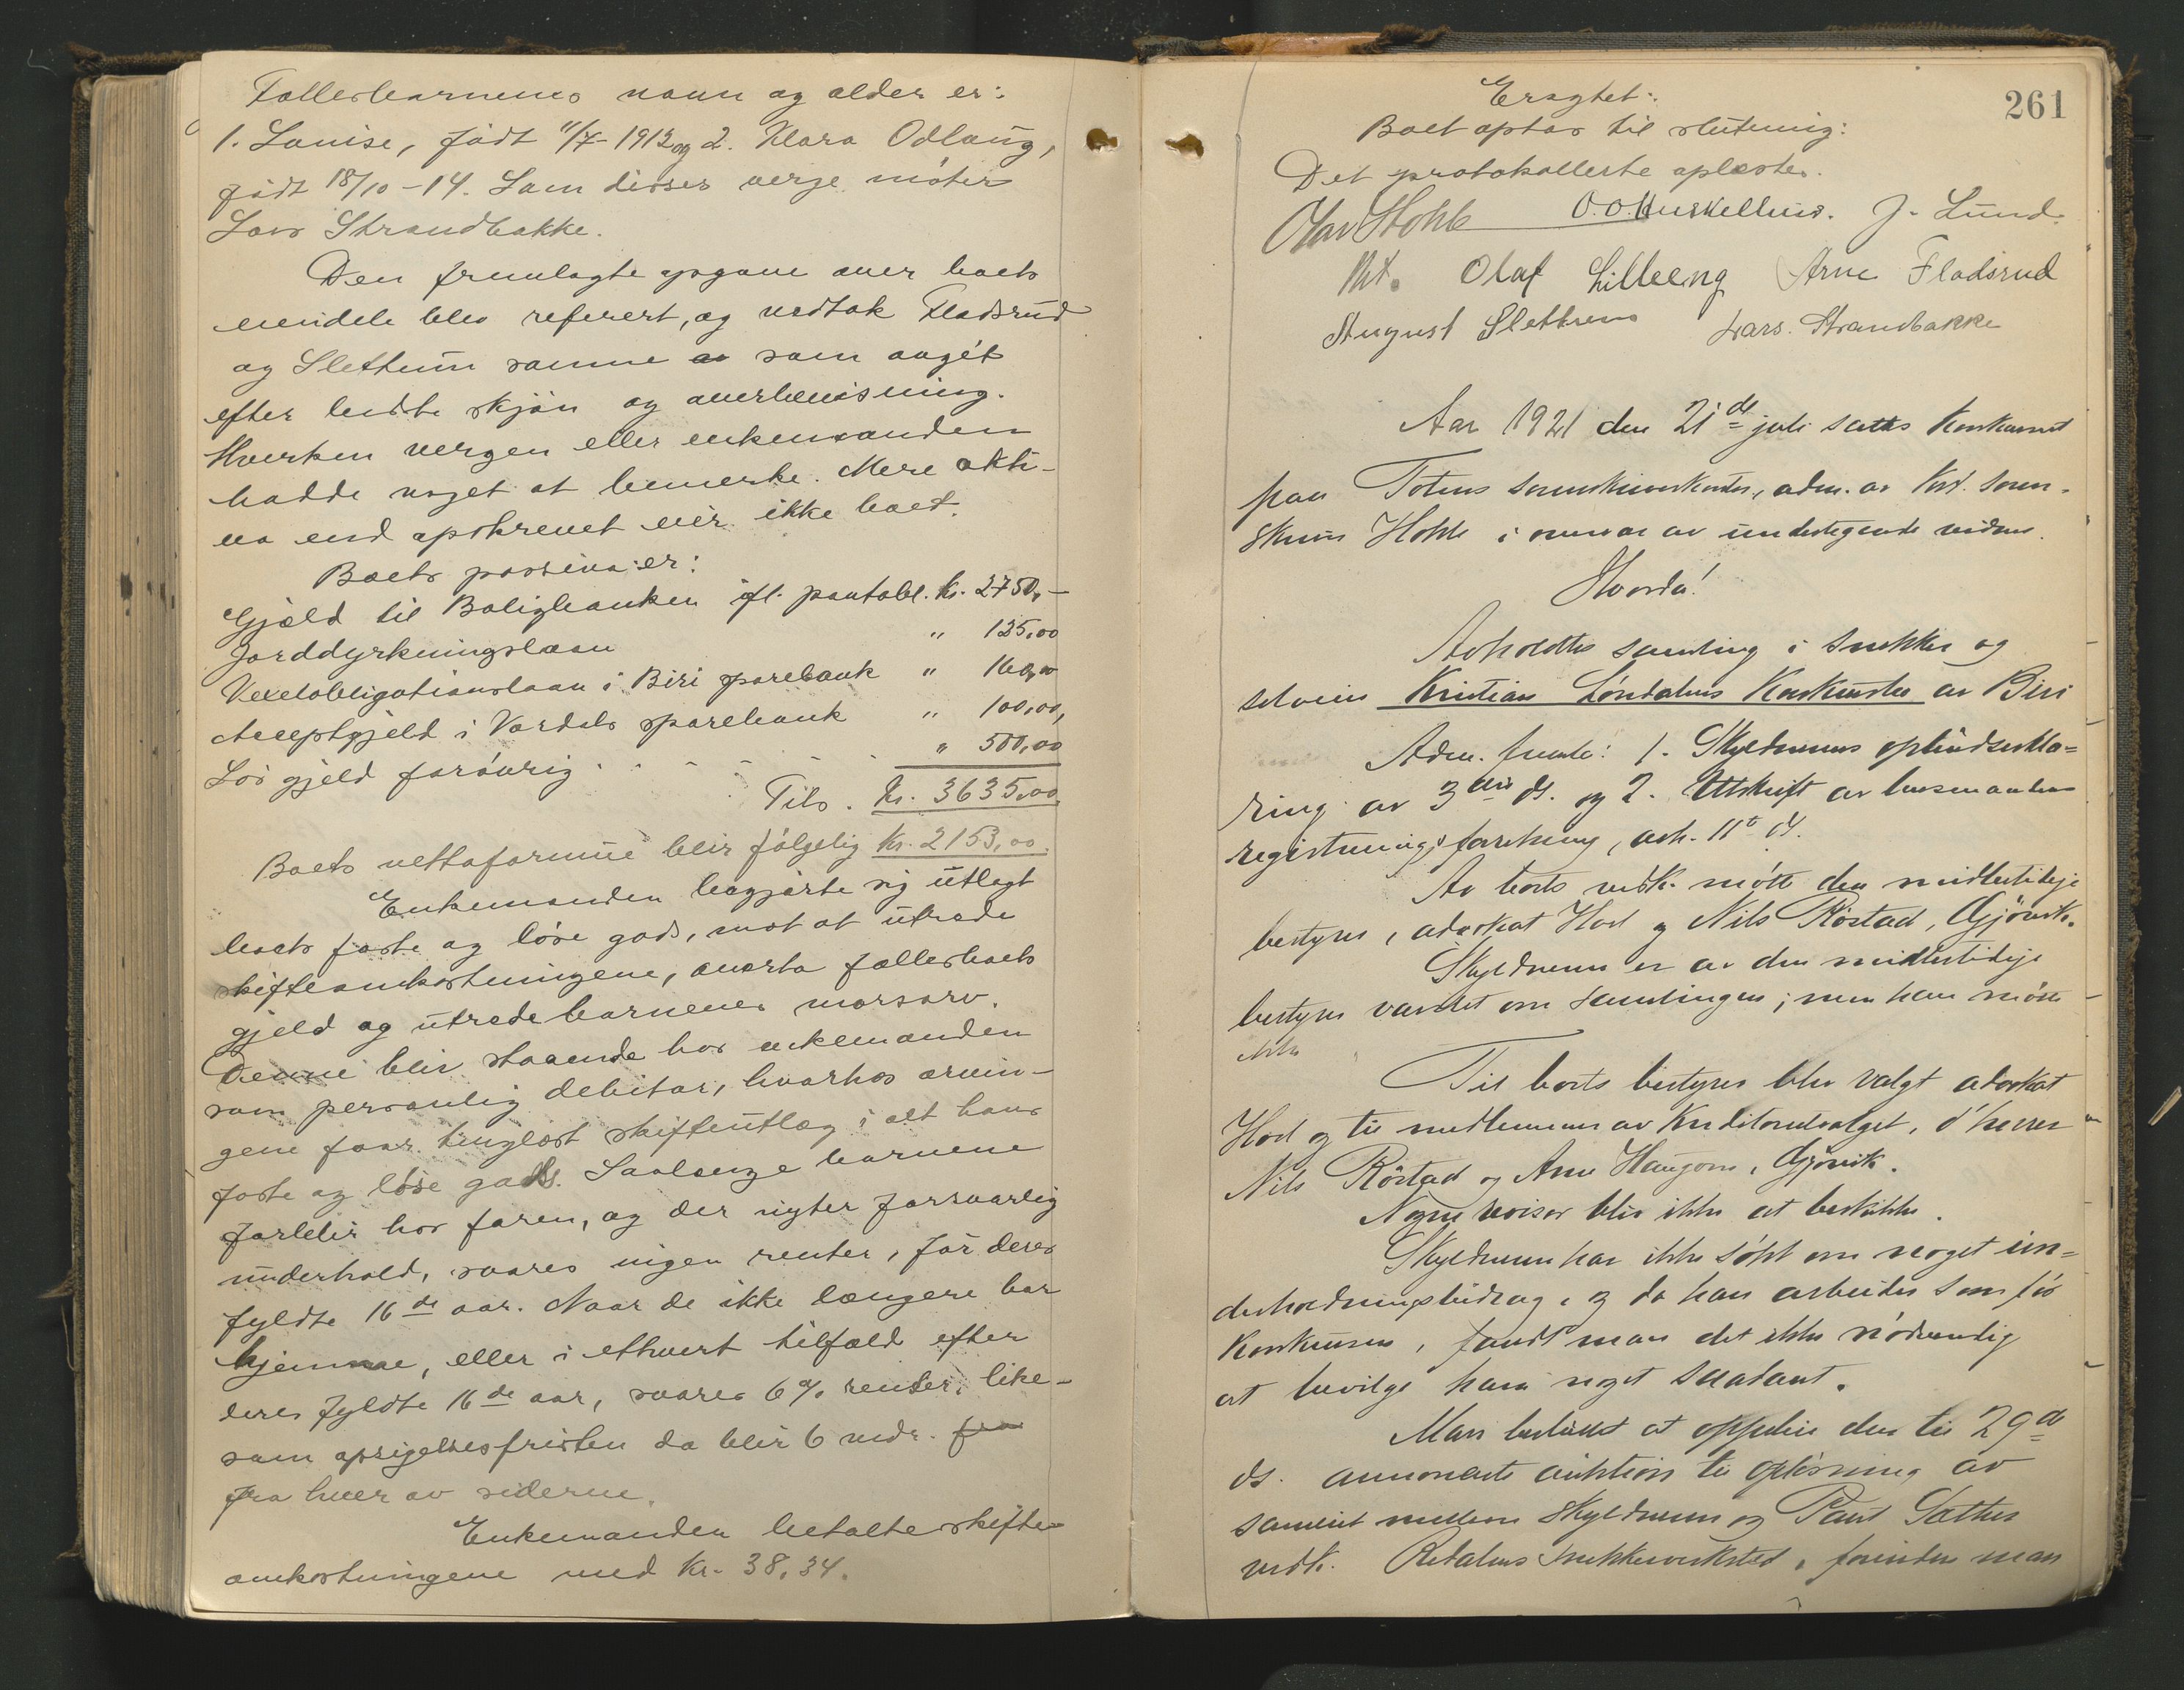 Fællesbarnenes navn og alder er:
1. Louise, født 11/7-1912 og 2. Klara Odlaug,
født 18/10-14. Som disses verge møter
Lars Strandbakke.
Den fremlagte opgave over boets
eiendele blev referert, og vedtok Fladsrud
og Slettum samme som avgit
efter bedste skjøn og overbevisning.
Hverken vergen eller enkemanden
hadde noget at bemerke. Mere akti-
va end opskrevet eier ikke boet.
Boets passiva er:
Gjæld til Boligbanken ifl. pantobl. kr. 2750,-
Jorddyrkningslaan " 125,00
Vexelobligationslaan i Biri sparebank " 160,00
Acceptgjeld i Vardals sparebank " 100,00,
Løs gjeld forøvrig " 500,00
Tils. kr. 3635,00.
Boets nettoformue blir følgelig kr. 2153,00.
Enkemanden begjærte sig utlagt
boets faste og løse gods, mot at utrede
skifteomkostningene, overta fællesboets
gjeld og utrede barnenes morsarv.
Denne blir staaende hos enkemanden
som personlig debitor, hvorhos arvin-
gene faar tinglæst skifteutlæg i alt hans
faste og løse gods. Saalænge barnene
forblir hos faren, og der nyter forsvarlig
underhold, svares ingen renter, før deres
fyldte 16de aar. Naar de ikke længere har
hjemme, eller i ethvert tilfæld efter
deres fyldte 16de aar, svares 6% renter, like-
som opsigelsesfristen da blir 6 mdr. fra
fra hver av siderne.
Enkemanden betalte skifte-
omkostningene med kr. 38,34.
261
Eragtet:
Boet optas til slutning:
Det protokollerte oplæstes.
Olav Hohle O. O. Huskelhus. J. Lund.
Olaf Lilleeng Arne Fladsrud
August Slettum Lars. Strandbakke
Aar 1921 den 21de juli sattes konkursret
paa Totens sorenskriverkontor, adm. av kst. soren-
skriver Hohle i overvær av undertegnede vidner.
Hvorda!
Avholdtes samling i snekker og
selveier Kristian Løndahls konkursbo av Biri
Adm. fremla: 1. Skyldnerens opbudserklæ=
ring av 3die ds. og 2. Utskrift av lensmandens
registreringsforretning, avh. 11te ds.
Av boets vedk. møtte den midlertidige
bestyrer, advokat Hoel og Nils Røstad, Gjøvik.
Skyldneren er av den midlertidige
bestyrer varslet om samlingen; men han møtte
ikke
Til boets bestyrer blev valgt advokat
Hoel og til medlemmer av kreditorutvalget, d'herrer
Nils Røstad og Arne Haugom, Gjøvik.
Nogen revisor blir ikke at beskikke.
Skyldneren har ikke søkt om noget un=
derholdningsbidrag, og da han arbeider som før
konkursen, fandt man det ikke nødvendig
at bevilge ham noget saadant.
Man besluttet at oppebie den til 29de
ds. annonserte auktion til opløsning av
sameiet mellem skyldneren og Paul Sæther
vedk. Redalens snekkerverksted, forinden man